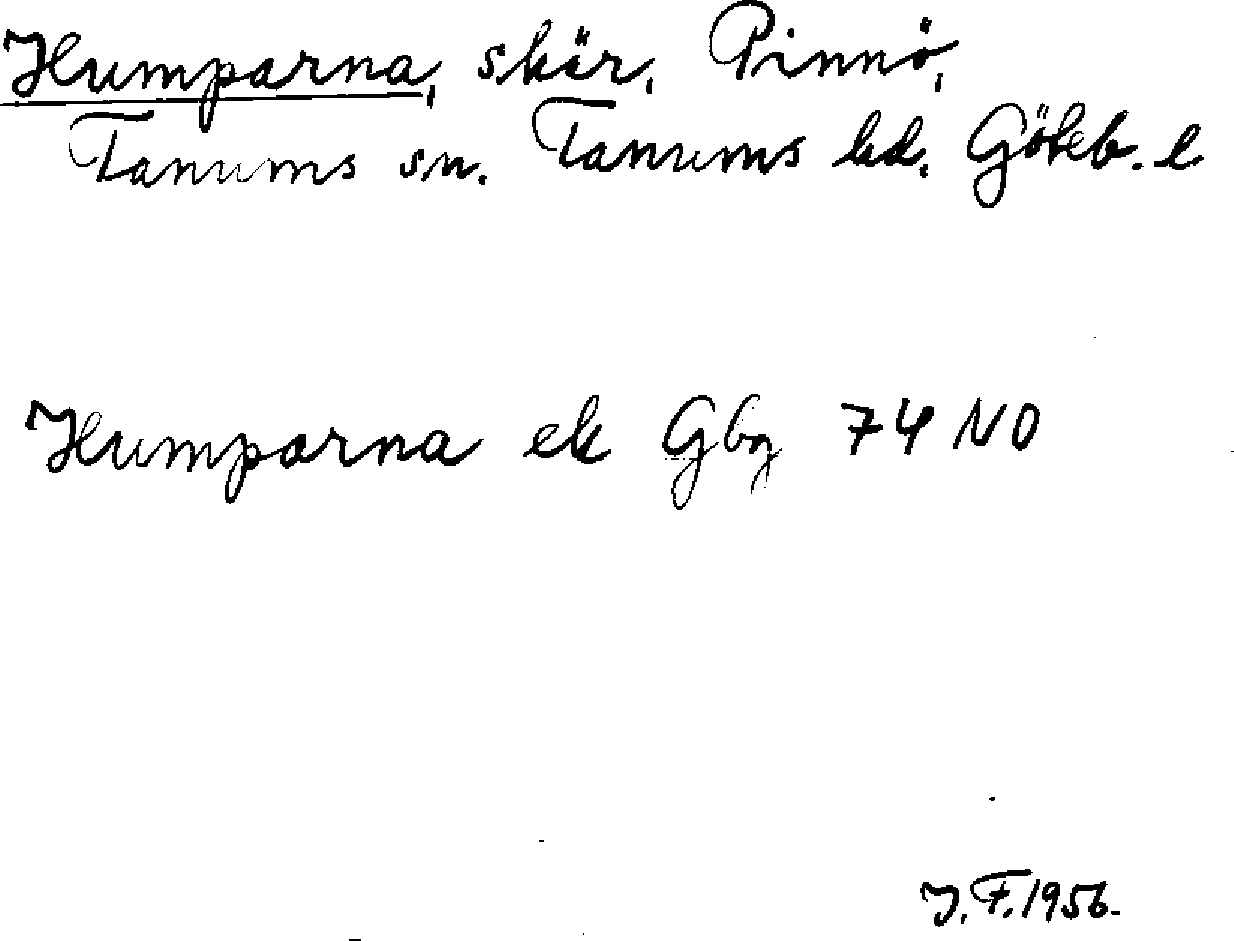 Humparna, skär, Pinnö,
Tanums sn. Tanums hd. Göteb. l
Humparna ek Gbg 74 NO
J. F. 1956.